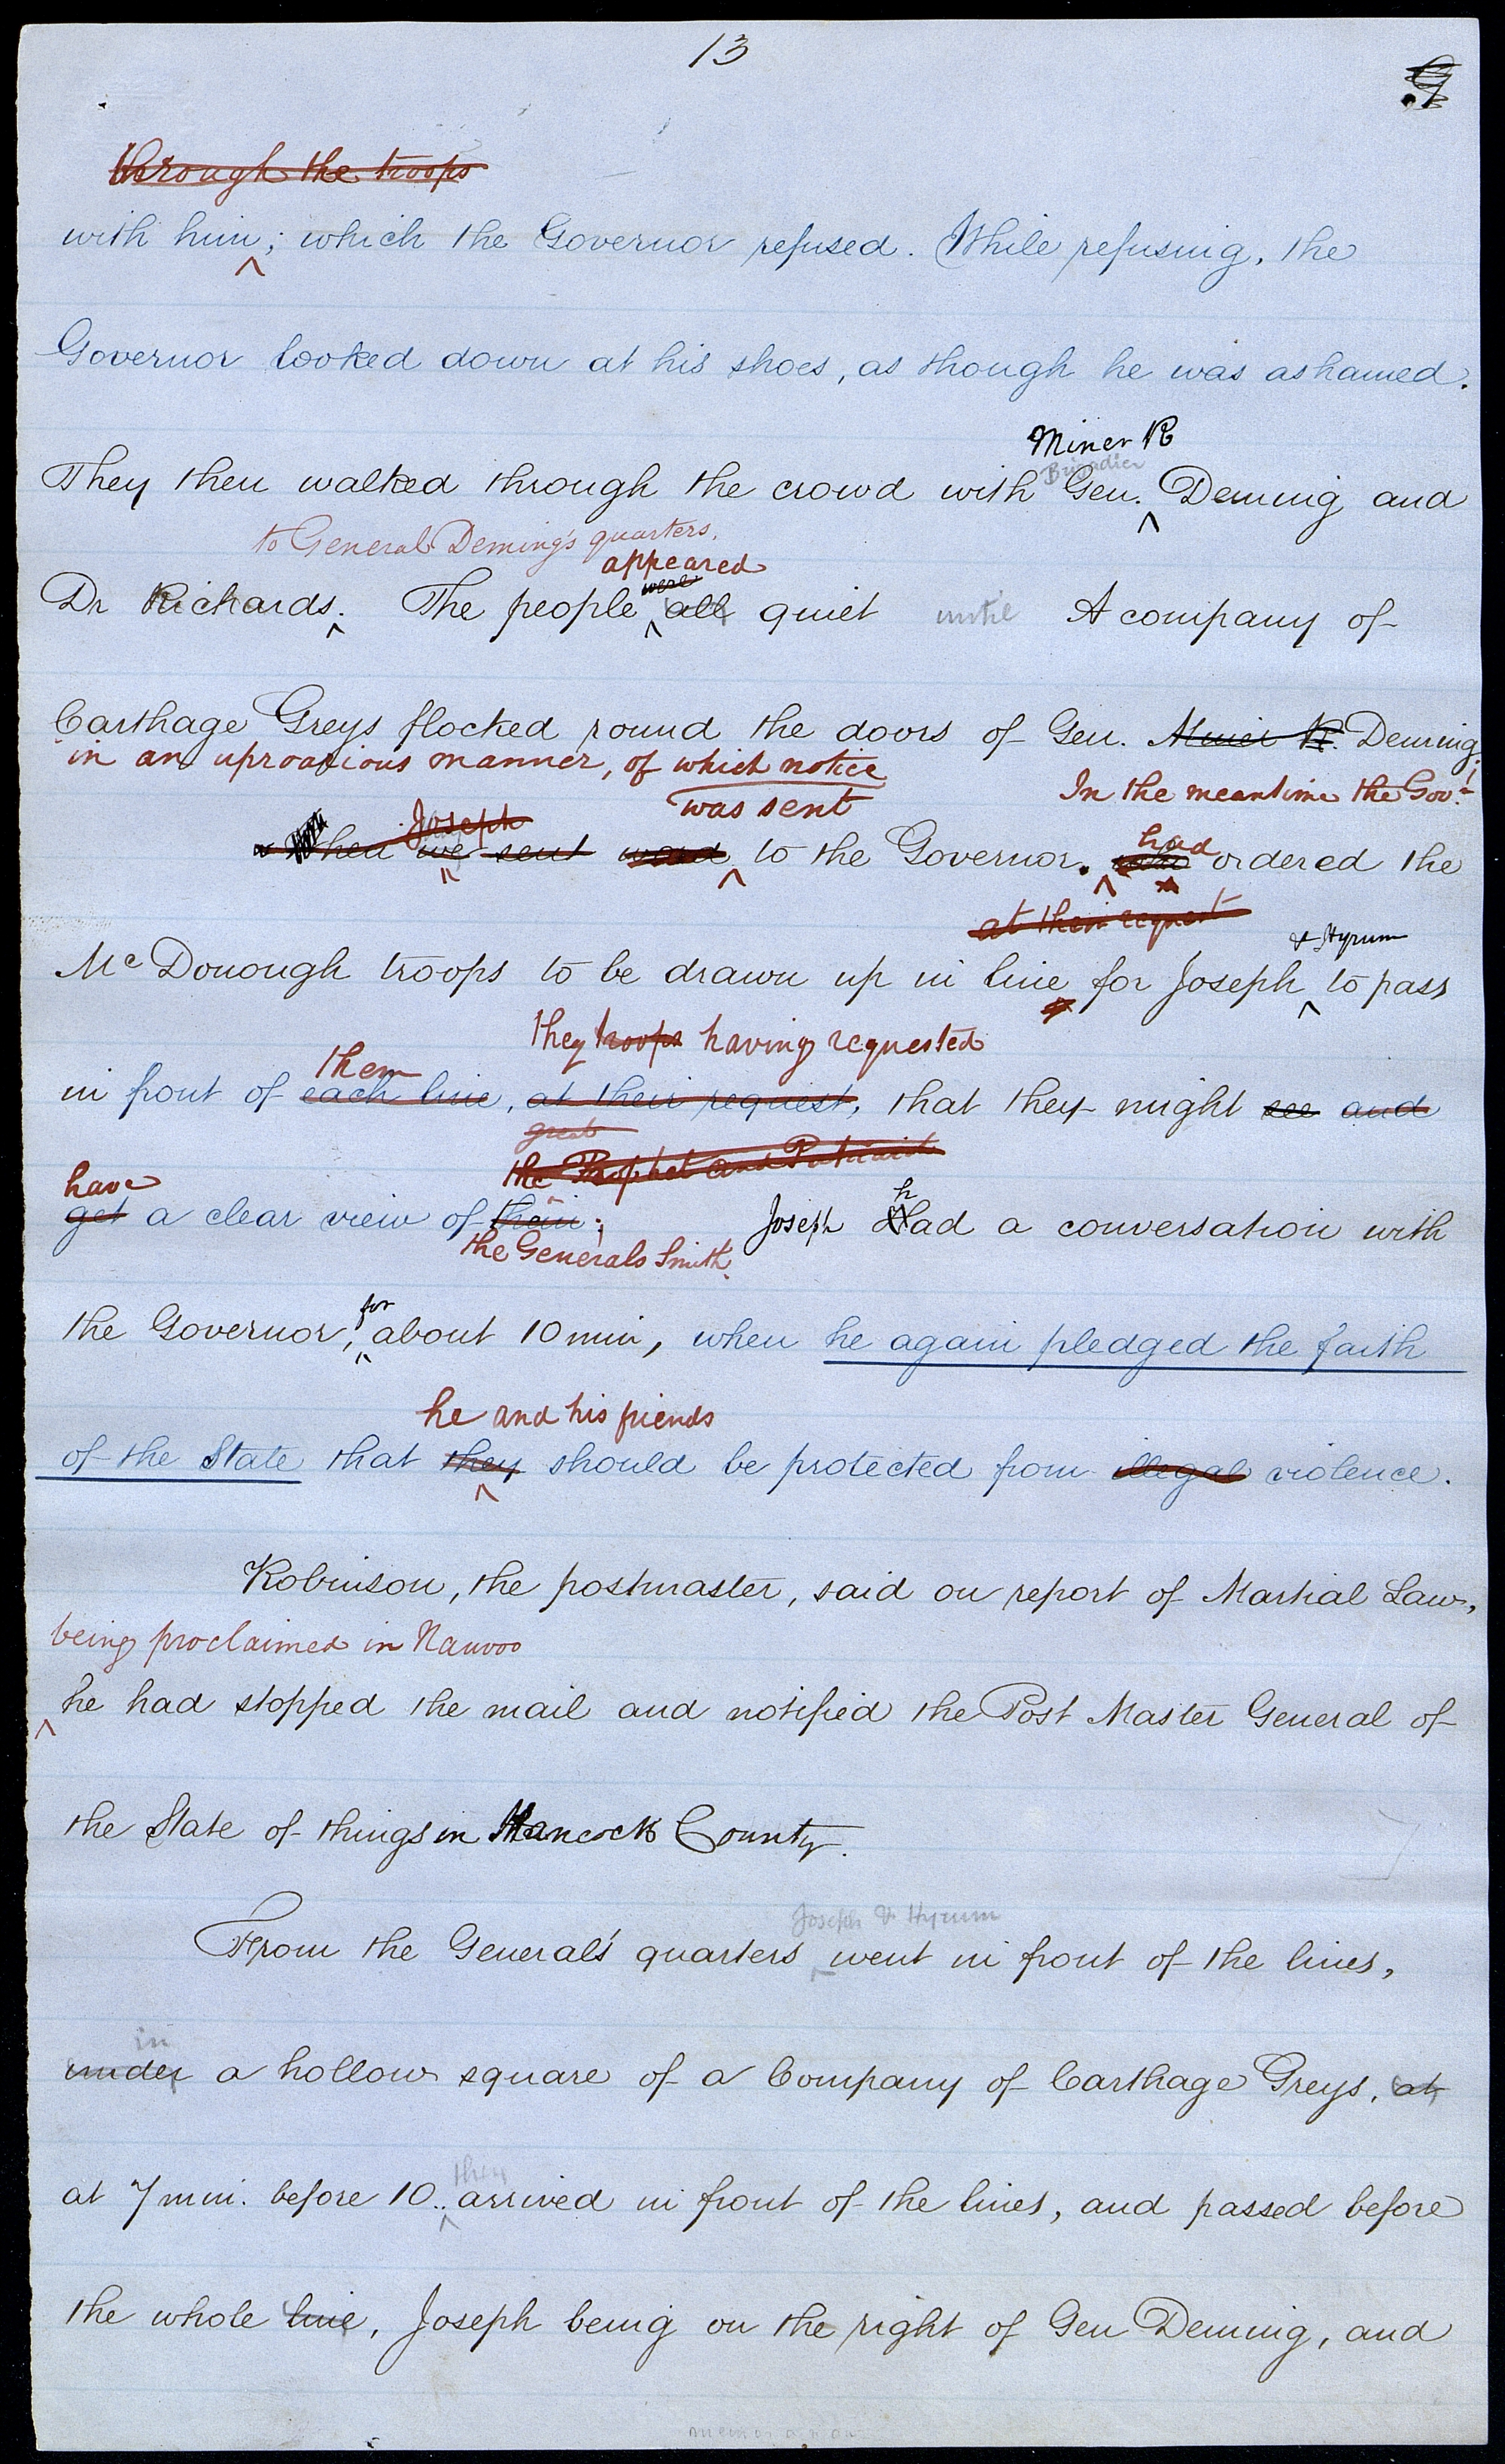 13
9
through the troops
with him; which the Governor refused. While refusing, the
Governor looked down at his shoes, as though he was ashamed.
Miner R
Brigadier
They then walked through the crowd with Gen. Deming and
to General Deming's quarters.
appeared
were
Dr Richards. The people all quiet until A company of
Carthage Greys flocked round the doors of Gen. Miner R. Deming
in an uproarious manner, of which notice
was sent
In the meantime the Govr
Joseph
had
When we sent word to the Governor. who ordered the
at their request
& Hyrum
Mc Donough troops to be drawn up in line for Joseph to pass
they troops having requested
them
in front of each line, at their request, that they might see and
great
the Prophet and Patriarch
have
h
get a clear view of them; Joseph Had a conversation with
the Generals Smith.
for
the Governor, about 10 min, when he again pledged the faith
he and his friends
of the State that they should be protected from illegal violence.
Robinson, the postmaster, said on report of Martial Law,
being proclaimed in Nauvoo
he had stopped the mail and notified the Post Master General of
the State of things in Hancock County.
Joseph & Hyrum
From the General's quarters went in front of the lines,
in
under a hollow square of a Company of Carthage Greys, at
they
at 7 min. before 10.. arrived in front of the lines, and passed before
the whole line, Joseph being on the right of Gen Deming, and